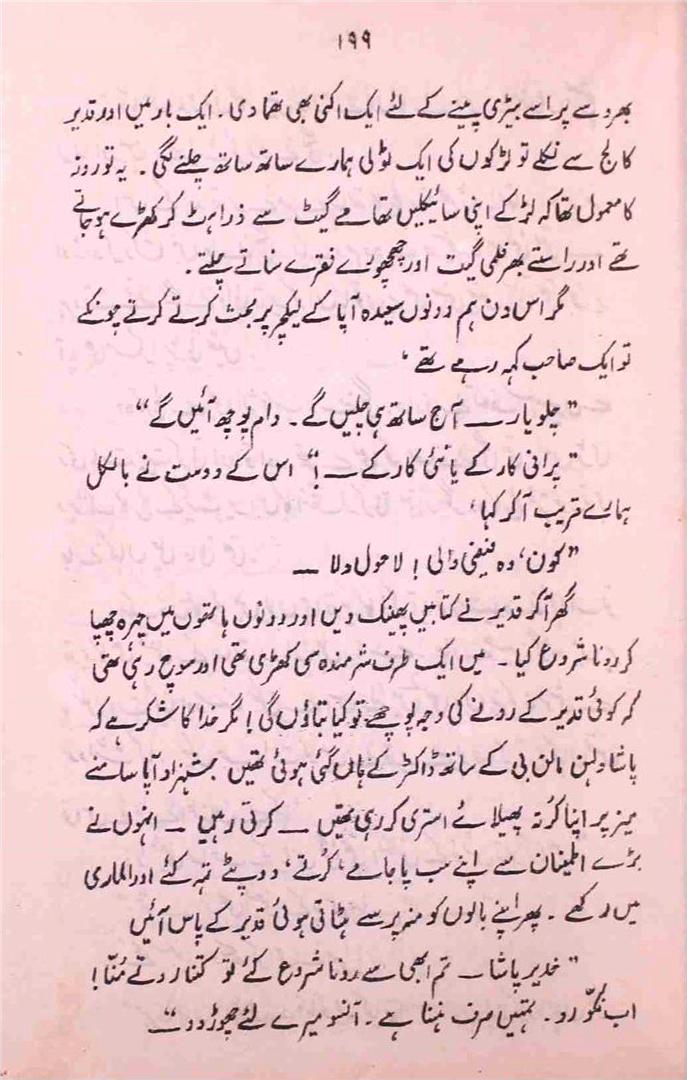 ۱۹۹
بھروسے پر اسے بیڑی پینے کے لئے ایک اکنی بھی تھما دی۔ ایک بار میں اور قدیر
کالج سے نکلے تو لڑکوں کی ایک ٹولی ہمارے ساتھ ساتھ چلنے لگی۔ یہ تو روز
کا معمول تھا کہ لڑکے اپنی سائیکلیں تھامے گیٹ سے ذرا ہٹ کر کھڑے ہو جاتے
تھے اور راستے بھر فلمی گیت اور چھچھورے فقرے سناتے چلتے۔
مگر اس دن ہم دونوں سعیدہ آپا کے لیکچر پر بحث کرتے کرتے چونکے
تو ایک صاحب کہہ رہے تھے،
”چلو یار — آج ساتھ ہی چلیں گے۔ دام پوچھ آئیں گے“
”پرانی کار کے یا نئی کار کے —!“ اس کے دوست نے بالکل
ہمارے قریب آکر کہا،
”کون، وہ فیفی والی! لاحول ولا —
گھر آکر قدیر نے کتابیں پھینک دیں اور دونوں ہاتھوں میں چہرہ چھپا
کر رونا شروع کیا۔ میں ایک طرف شرمندہ سی کھڑی تھی اور سوچ رہی تھی
کہ کوئی قدیر کے رونے کی وجہ پوچھے تو کیا بتاؤں گی! مگر خدا کا شکر ہے کہ
پاشا دلہن مالن بی کے ساتھ ڈاکٹر کے ہاں گئی ہوئی تھیں شہزاد آپا سامنے
میز پر اپنا کُرتہ پھیلائے استری کر رہی تھیں — کرتی رہیں — انہوں نے
بڑے اطمینان سے اپنے سب پاجامے، کُرتے، دوپٹے تہہ کئے اور الماری
میں رکھے۔ پھر اپنے بالوں کو منہ پر سے ہٹاتی ہوئی قدیر کے پاس آئیں
”خدیر پاشا — تم ابھی سے رونا شروع کئے تو کتنا روتے مُنّا!
اب نکّو رو۔ تمہیں صرف ہنسنا ہے۔ آنسو میرے لئے چھوڑ دو“ —